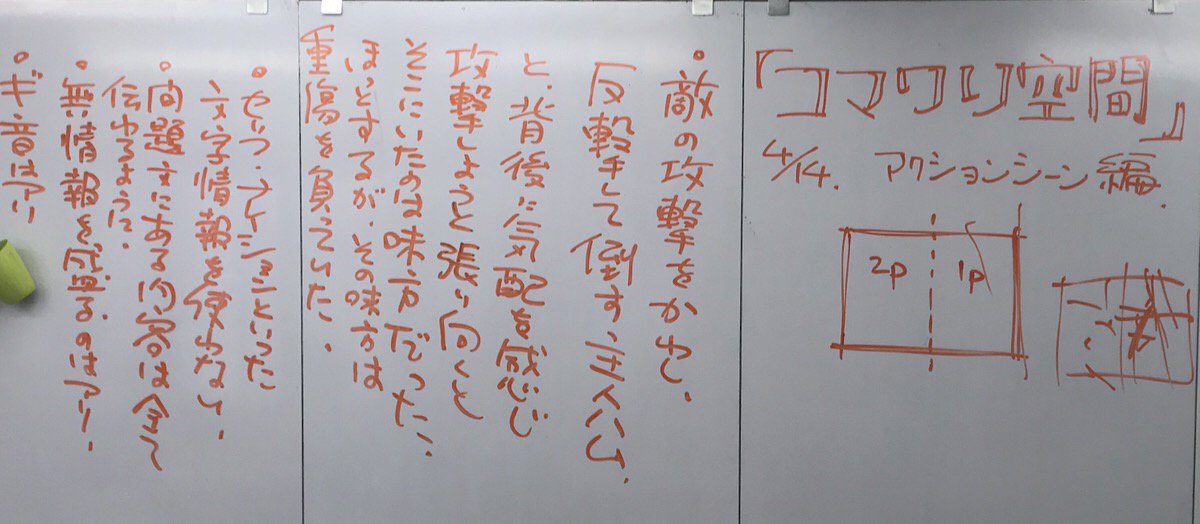 「コマワリ空間」
4/14. アクションシーン編.
2p 1p
・敵の攻撃をかわし、
反撃して倒す主人公.
と、背後に気配を感じ
攻撃しようと張り向くと
そこにいたのは味方だった、
ほっとするが、その味方は
重傷を負っていた.
・セリフ・ナレーションといった
文字情報を使わない.
・問題文にある内容は全て
伝わるように.
・無情報を盛るのはアリ.
・ギ音はアリ